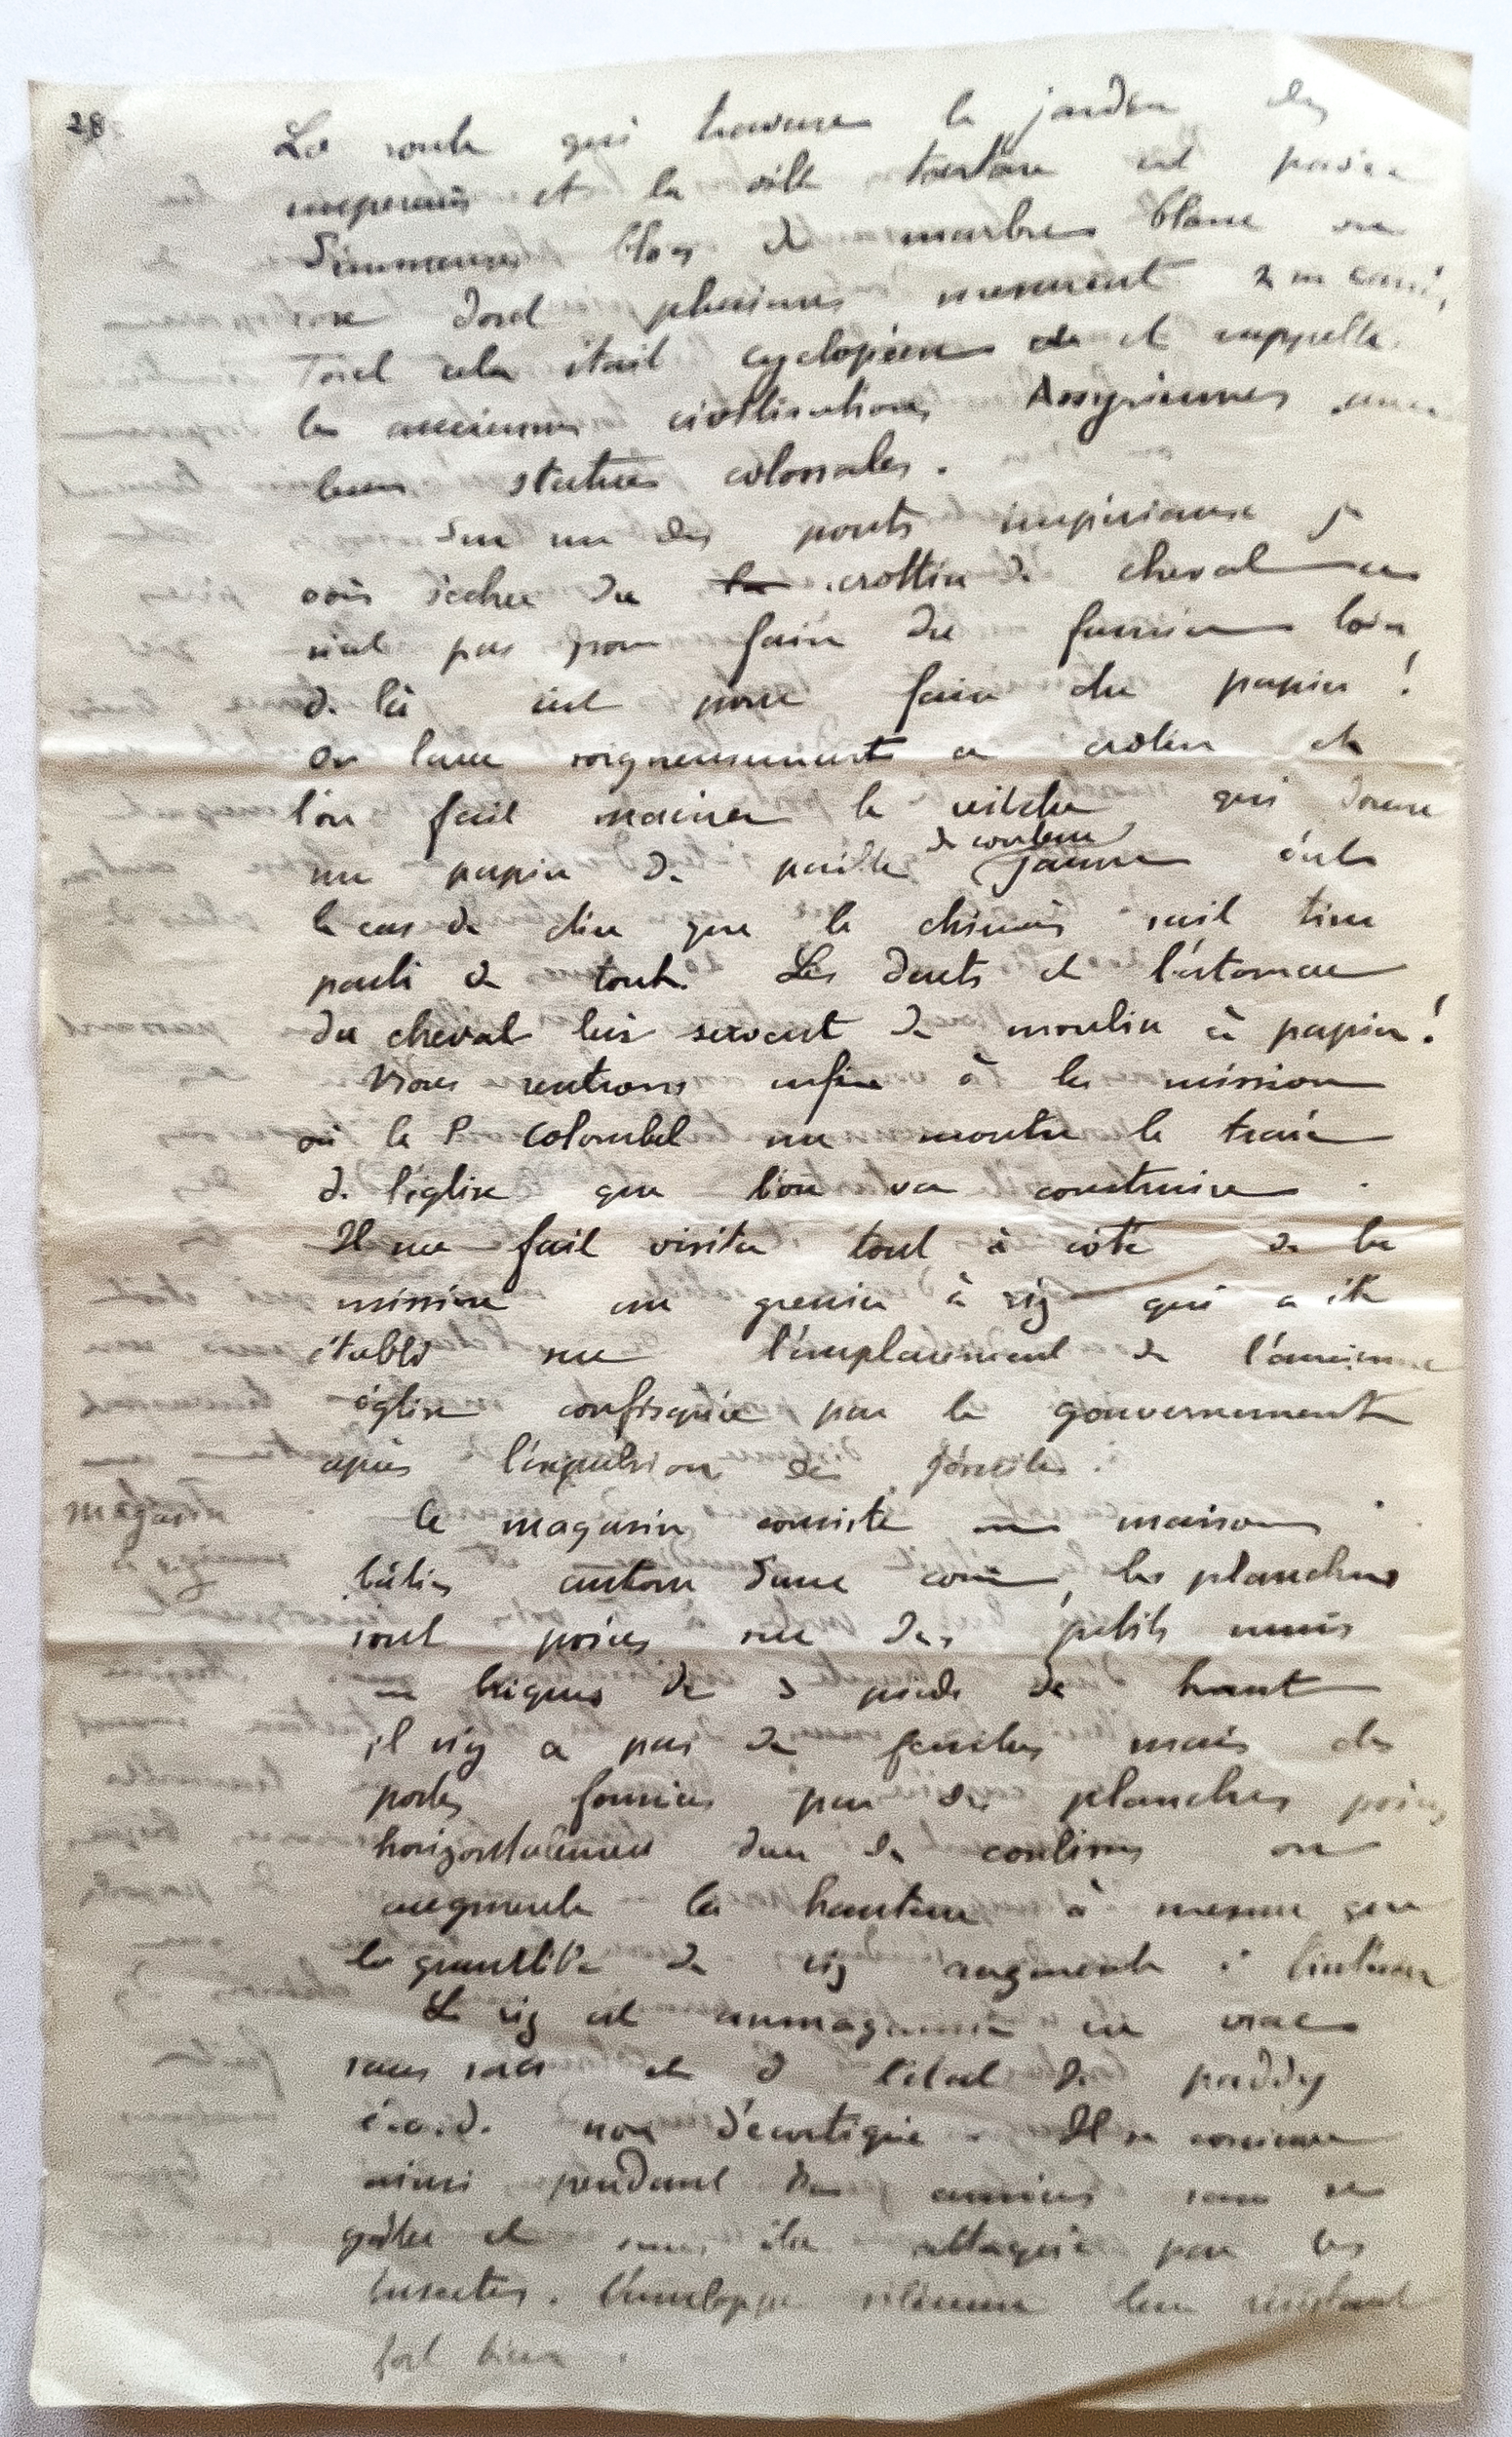 28
La route qui traverse le jardin des
empereurs et la ville tartare est pavée
d'immenses blocs de marbre blanc ou
rose dont plusieurs mesurent 2 m carré,
Tout cela était cyclopéen et rappelle
les anciennes civilisations Assyriennes avec
leurs statues colossales.
Sur un des ponts impériaux je
vois sécher du la crottin de cheval ce
n'est pas pour faire du fumier loin
de là c'est pour faire du papier !
On lave soigneusement ce crotin et
l'on fait macérer le qui donne
un papier de paille de couleur jaune c'est
le cas de dire que le chinois sait tirer
parti de tout. Les dents et l'estomac
du cheval lui servent de moulin à papier !
Nous rentrons enfin à la mission
où le P. Colombel me montre le tracé
de l'église que l'on va construire.
Il me fait visiter tout à côté de la
mission un grenier à riz qui a été
établi sur l'emplacement de l'ancienne
église confisquée par le gouvernement
après l'expulsion des Jésuites.
magasin
à riz
Ce magasin consiste en maisons
bâties autour d'une cour, les planchers
sont posés sur des petits murs
en briques de 3 pieds de haut
il n'y a pas de fenêtres mais des
portes formées par des planches posées
horizontalement dans des coulisses on
augmente la hauteur à mesure que
la quantité de riz augmente à l'intérieur
Le riz est emmagasiné en vrac
sans sacs et à l'état de paddy
c.a.d. non décortiqué. Il se conserve
ainsi pendant des années sans se
gâter et sans être attaqué par les
insectes. L'enveloppe siliceuse leur résistant
fort bien.